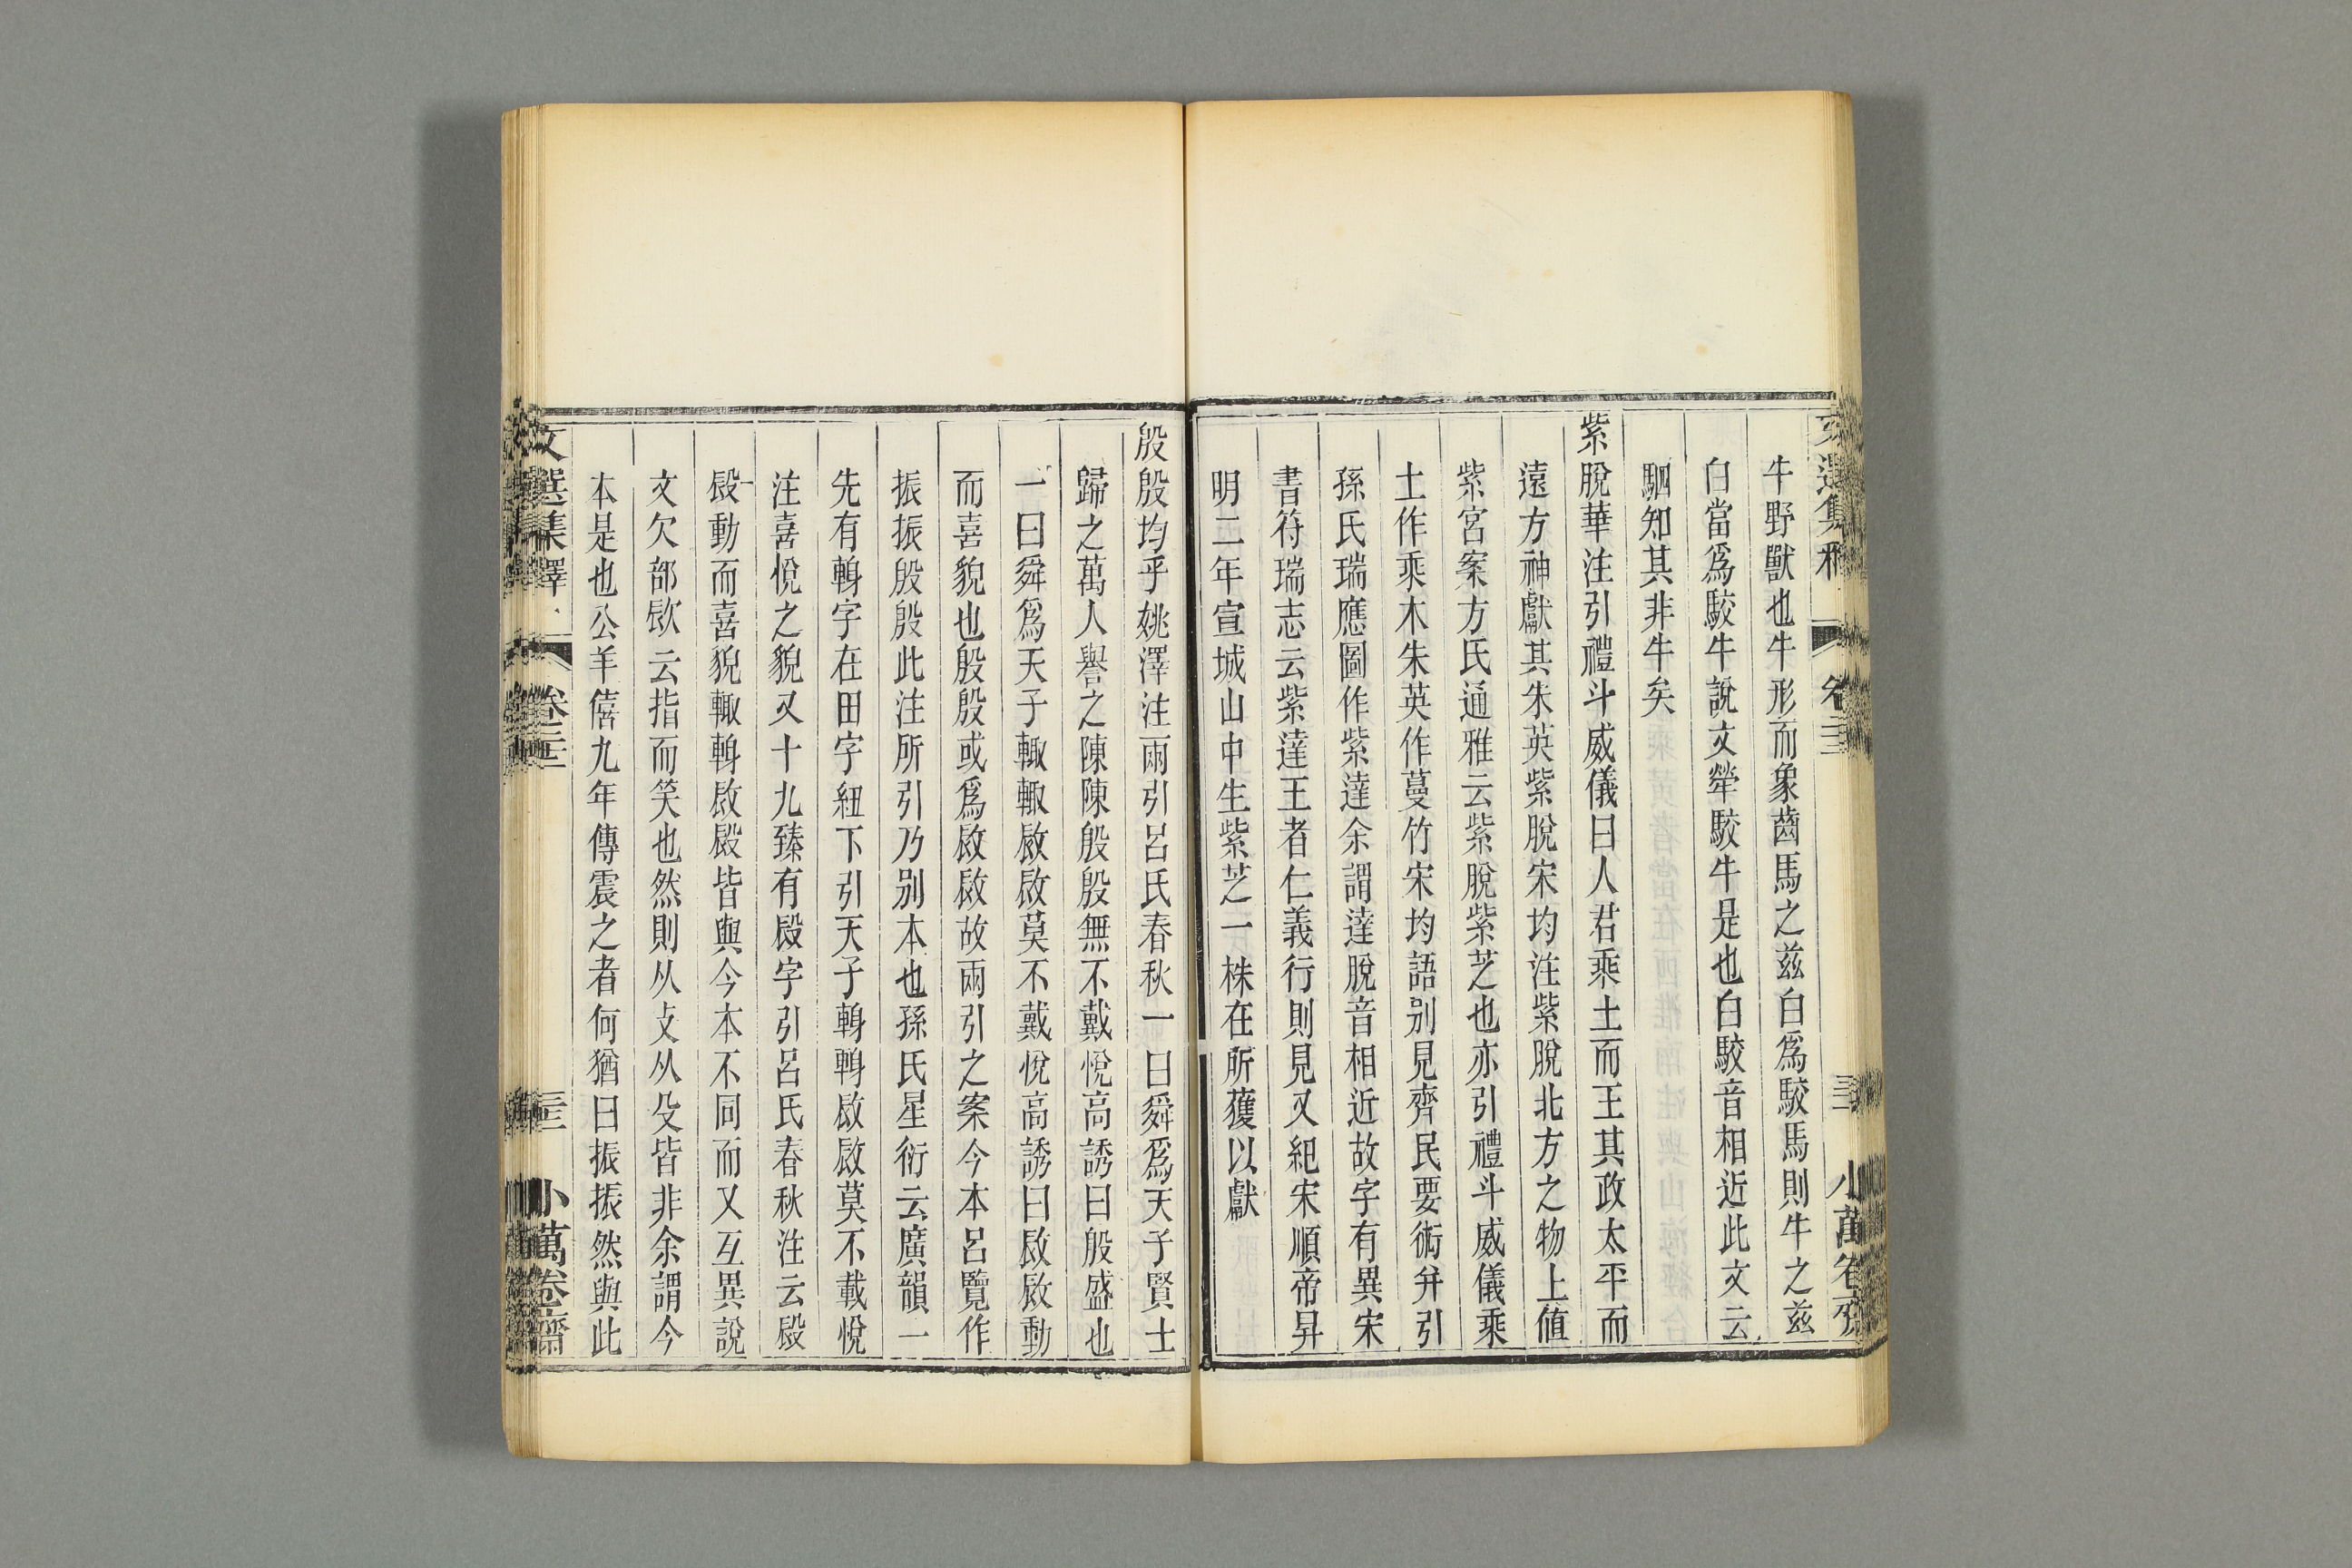 牛野獸也牛形而象齒馬之茲白爲駮馬則牛之茲
白當爲駮牛說文犖駮牛是也白駮音相近此文云
駰知其非牛矣
紫脫華注引禮斗威儀曰人君乘土而王其政太平而
遠方神獻其朱英紫脫宋均注紫脫北方之物上値
紫宮案方氏通雅云紫脫紫芝也亦引禮斗威儀乘
土作乘木朱英作蔓竹宋均語別見齊民要術幷引
孫氏瑞應圖作紫達余謂達脫音相近故字有異宋
書符瑞志云紫達王者仁義行則見又紀宋順帝昇
明二年宣城山中生紫芝一株在所獲以獻
殷殷均乎姚澤注兩引呂氏春秋一曰舜爲天子賢士
歸之萬人譽之陳陳殷殷無不戴悅高誘曰殷盛也
一曰舜爲天子輙輙啟啟莫不戴悅高誘曰啟啟動
而喜貌也殷殷或爲啟啟故兩引之案今本呂覽作
振振殷殷此注所引乃別本也孫氏星衍云廣韻一
先有輷字在田字紐下引天子輷輷啟啟莫不載悅
注喜悅之貌又十九臻有殿字引呂氏春秋注云殿
殿動而喜貌輙輷啟殿皆與今本不同而又互異說
文欠部㰦云指而笑也然則从攴从殳皆非余謂今
本是也公羊僖九年傳震之者何猶曰振振然與此
文選集釋
卷二十三
小萬卷齋